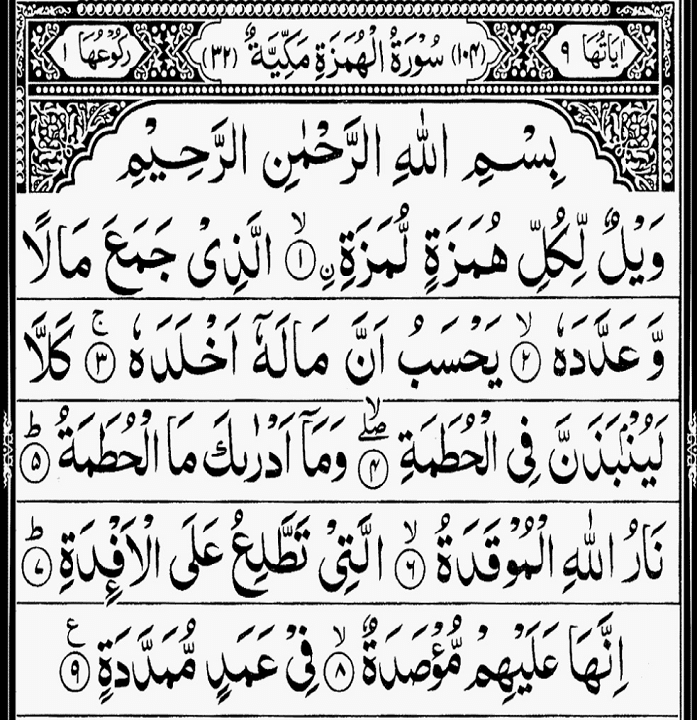 اٰيَاتُهَا ٩ (١٠٤) سُوْرَةُ الْهُمَزَةِ مَكِّيَّةٌ (٣٢) رُكُوْعُهَا ١
بِسْمِ اللّٰهِ الرَّحْمٰنِ الرَّحِيْمِ
وَيْلٌ لِّكُلِّ هُمَزَةٍ لُّمَزَةِ ۣ ۙ﴿١﴾ الَّذِىْ جَمَعَ مَالًا
وَّعَدَّدَهٗ ۙ﴿٢﴾ يَحْسَبُ اَنَّ مَالَهٗۤ اَخْلَدَهٗ ۚ﴿٣﴾ كَلَّا
لَيُنْۢبَذَنَّ فِى الْحُطَمَةِ ۖ ۙ﴿٤﴾ وَمَاۤ اَدْرٰىكَ مَا الْحُطَمَةُ ؕ﴿٥﴾
نَارُ اللّٰهِ الْمُوْقَدَةُ ۙ﴿٦﴾ الَّتِىْ تَطَّلِعُ عَلَى الْاَفْـِٕدَةِ ؕ﴿٧﴾
اِنَّهَا عَلَيْهِمْ مُّؤْصَدَةٌ ۙ﴿٨﴾ فِىْ عَمَدٍ مُّمَدَّدَةٍ ࣖ﴿٩﴾